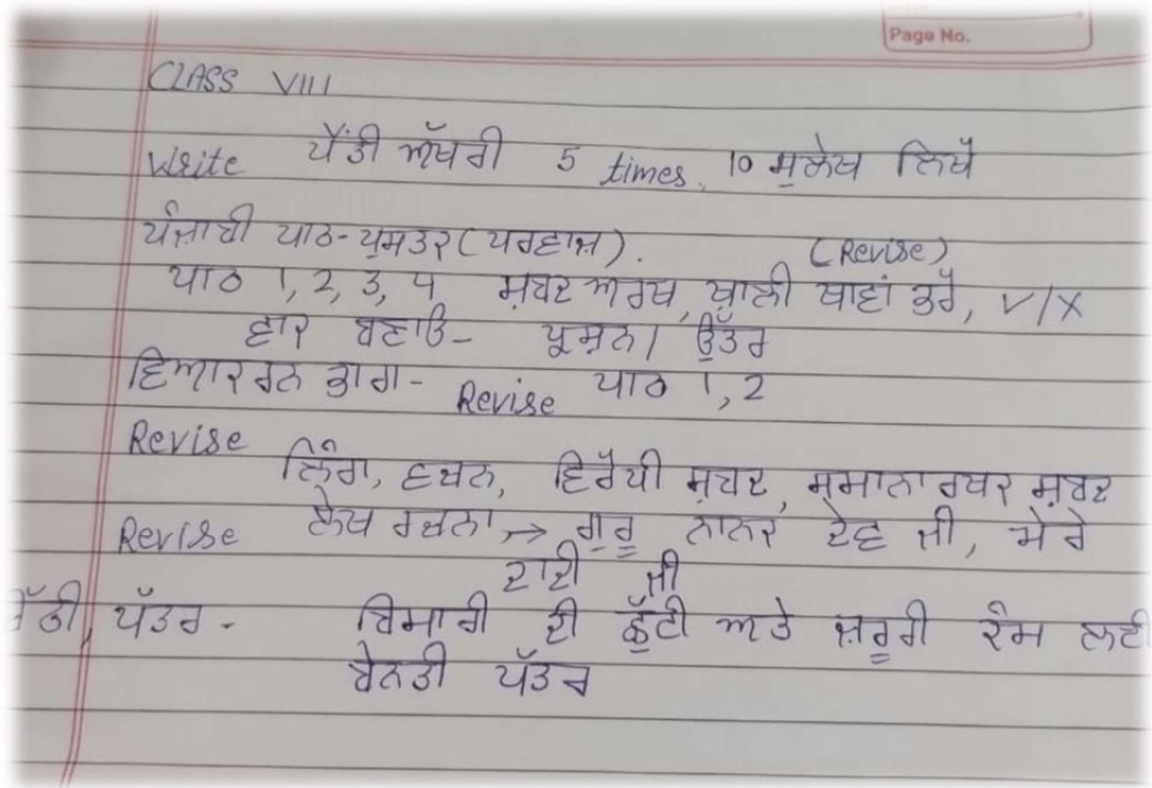 Page No.
CLASS VIII
Write ਪੈਂਤੀ ਅੱਖਰੀ 5 times. 10 ਸੁਲੇਖ ਲਿਖੋ
ਪੰਜਾਬੀ ਪਾਠ-ਪੁਸਤਕ (ਪਰਵਾਜ਼). (Revise)
ਪਾਠ 1, 2, 3, 4 ਸ਼ਬਦ ਅਰਥ, ਖ਼ਾਲੀ ਥਾਵਾਂ ਭਰੋ, ✓/X
ਵਾਕ ਬਣਾਓ- ਪ੍ਰਸ਼ਨ/ ਉੱਤਰ
ਵਿਆਕਰਨ ਭਾਗ- Revise ਪਾਠ 1, 2
Revise ਲਿੰਗ, ਵਚਨ, ਵਿਰੋਧੀ ਸ਼ਬਦ, ਸਮਾਨਾਰਥਕ ਸ਼ਬਦ
Revise ਲੇਖ ਰਚਨਾ → ਗੁਰੂ ਨਾਨਕ ਦੇਵ ਜੀ, ਮੇਰੇ
ਦਾਦੀ ਜੀ
ਪੱਤਰ- ਬਿਮਾਰੀ ਦੀ ਛੁੱਟੀ ਅਤੇ ਜ਼ਰੂਰੀ ਕੰਮ ਲਈ
ਬੇਨਤੀ ਪੱਤਰ